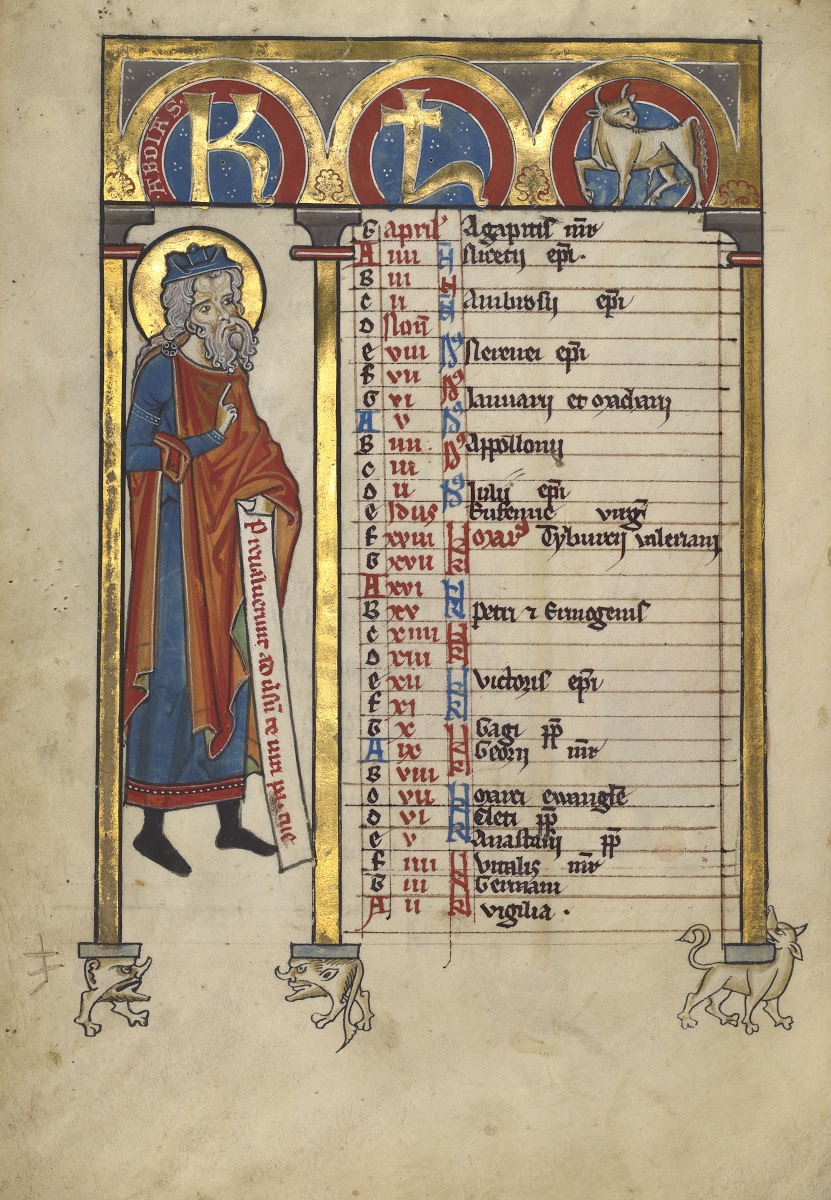 ABDIAS
KL
G april Agapitis mr
A iiii Nicetii epi.
B iii
C ii Ambrosii epi
D Non
e viii epi
f vii
G vi Januarii et
A v
B iiii Appollonii
C iii
D ii Julii epi
e Idus Eufemie virg
f xviii Tyburcii valeriani
G xvii
A xvi
B xv petri ⁊ Ermogenis
C xiiii
D xiii
e xii victoris epi
f xi
G x Gagi pp
A ix Georii mr
B viii
C vii Marci ewangle
D vi Cleti pp
e v Anastasii pp
f iiii vitalis mr
G iii Germani
A ii vigilia.
Prevaluerunt ad